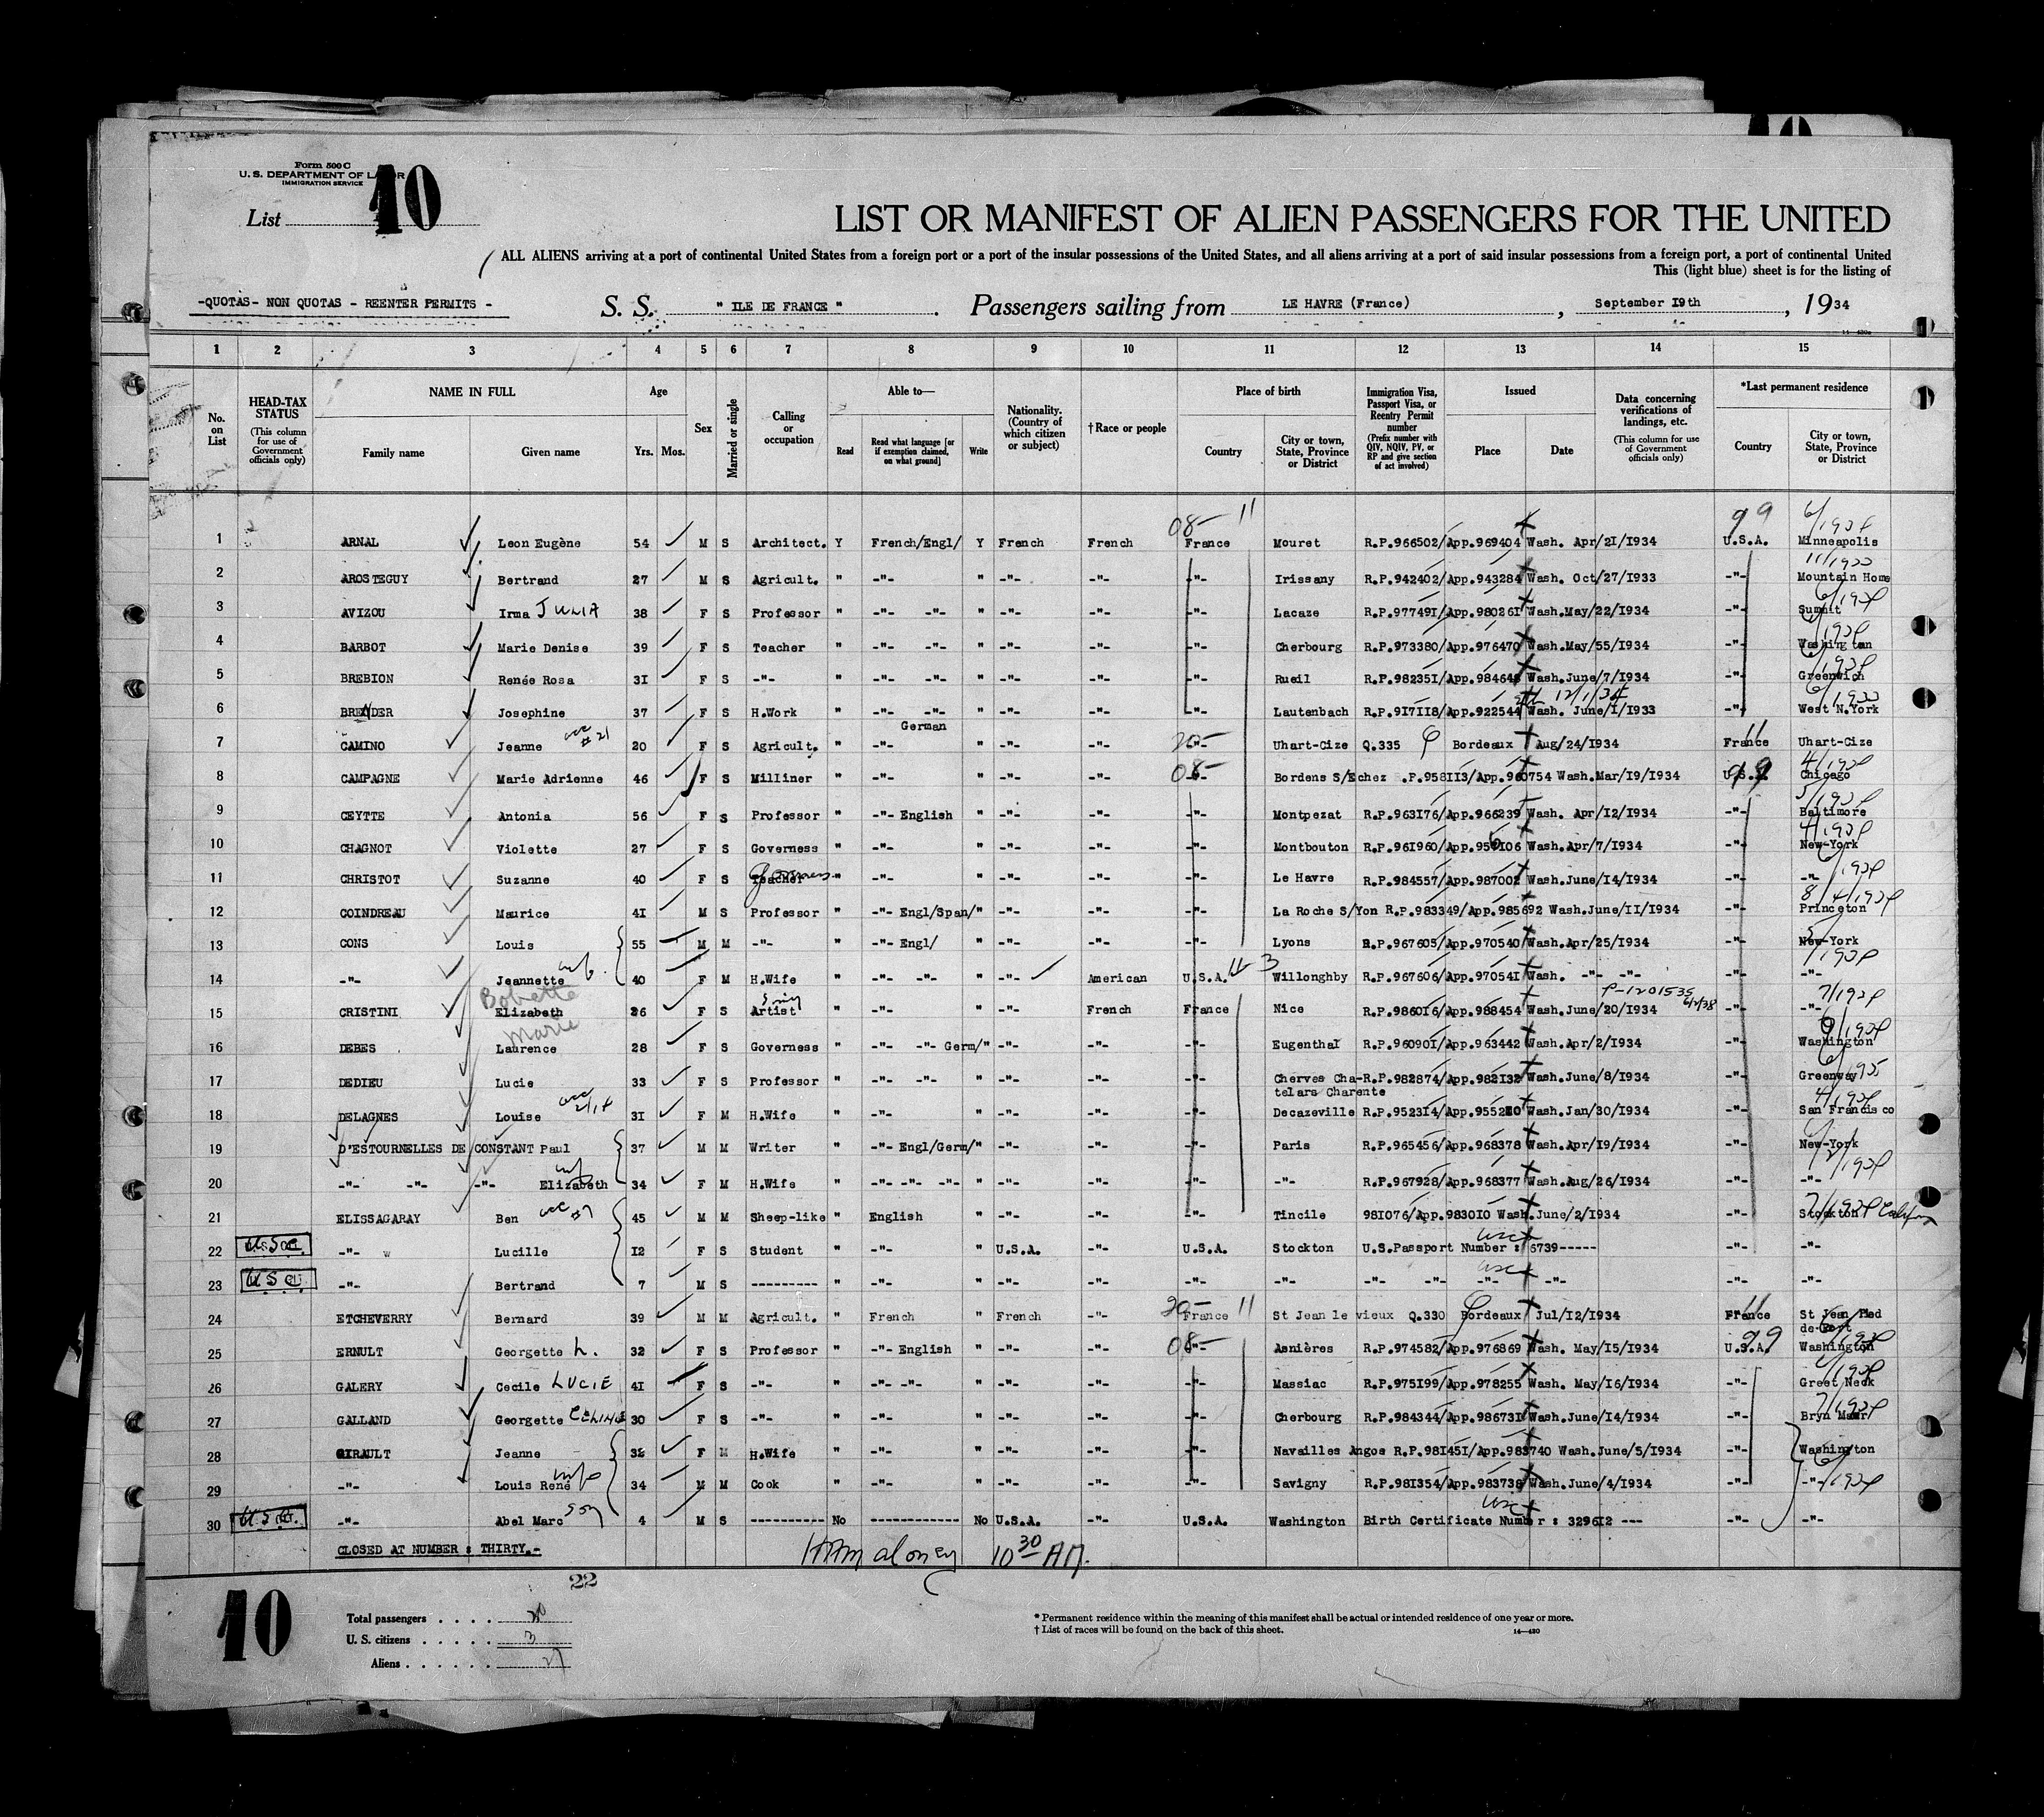 Form 500 C
U. S. DEPARTMENT OF LABOR
IMMIGRATION SERVICE
List 10
LIST OR MANIFEST OF ALIEN PASSENGERS FOR THE UNITED
ALL ALIENS arriving at a port of continental United States from a foreign port or a port of the insular possessions of the United States, and all aliens arriving at a port of said insular possessions from a foreign port, a port of continental United
This (light blue) sheet is for the listing of
-QUOTAS- NON QUOTAS - REENTER PERMITS - S. S. " ILE DE FRANCE ". Passengers sailing from LE HAVRE (France), September 19th, 1934
1 2 3 4 5 6 7 8 9 10 11 12 13 14 15
No. on List
HEAD-TAX STATUS (This column for use of Government officials only)
NAME IN FULL
Family name Given name
Age
Yrs. Mos.
Sex
Married or single
Calling or occupation
Able to—
Read Read what language [or if exemption claimed, on what ground] Write
Nationality. (Country of which citizen or subject)
†Race or people
Place of birth
Country City or town, State, Province or District
Immigration Visa, Passport Visa, or Reentry Permit number (Prefix number with QIV, NQIV, PV, or RP and give section of act involved)
Issued
Place Date
Data concerning verifications of landings, etc. (This column for use of Government officials only)
*Last permanent residence
Country City or town, State, Province or District
1 ARNAL Leon Eugène 54 M S Architect. Y French/Engl/ Y French French France Mouret R.P.966502/App.969404 Wash. Apr/21/1934 U.S.A. Minneapolis
2 AROSTEGUY Bertrand 27 M S Agricult. " -"- " -"- -"- -"- Irissany R.P.942402/App.943284 Wash. Oct/27/1933 -"- Mountain Home
3 AVIZOU Irma JULIA 38 F S Professor " -"- -"- " -"- -"- -"- Lacaze R.P.977491/App.980261 Wash.May/22/1934 -"- Summit
4 BARBOT Marie Denise 39 F S Teacher " -"- -"- " -"- -"- -"- Cherbourg R.P.973380/App.976470 Wash.May/55/1934 -"- Washington
5 BREBION Renée Rosa 31 F S -"- " -"- -"- " -"- -"- -"- Rueil R.P.982351/App.98464 Wash.June/7/1934 -"- Greenwich
6 BRENDER Josephine 37 F S H.Work " -"- -"- German " -"- -"- -"- Lautenbach R.P.917118/App.922544 Wash. June/1/1933 -"- West N.York
7 CAMINO Jeanne #21 20 F S Agricult. " -"- " -"- -"- -"- Uhart-Cize Q.335 Bordeaux Aug/24/1934 France Uhart-Cize
8 CAMPAGNE Marie Adrienne 46 F S Milliner " -"- " -"- -"- -"- Bordens S/Echez .P.958113/App.960754 Wash.Mar/19/1934 U.S.A. Chicago
9 CEYTTE Antonia 56 F S Professor " -"- English " -"- -"- -"- Montpezat R.P.963176/App.966239 Wash. Apr/12/1934 -"- Baltimore
10 CHAGNOT Violette 27 F S Governess " -"- " -"- -"- -"- Montbouton R.P.961960/App. Wash.Apr/7/1934 -"- New-York
11 CHRISTOT Suzanne 40 F S Teacher " -"- " -"- -"- -"- Le Havre R.P.984557/App.987002 Wash.June/14/1934 -"- -"-
12 COINDREAU Maurice 41 M S Professor " -"- Engl/Span/" -"- -"- -"- La Roche S/Yon R.P.983349/App.985692 Wash.June/11/1934 -"- Princeton
13 CONS Louis 55 M M -"- " -"- Engl/ " -"- -"- -"- Lyons R.P.967605/App.970540 Wash.Apr/25/1934 -"- New-York
14 -"- Jeannette wf. 40 F M H.Wife " -"- -"- " -"- American U.S.A. Willonghby R.P.967606/App.970541 Wash. -"- -"- -"- -"-
15 CRISTINI Bobette Elizabeth 26 F S Artist " -"- " -"- French France Nice R.P.986016/App.988454 Wash.June/20/1934 P-1201535 -"- -"-
16 DEBES Marie Laurence 28 F S Governess " -"- -"- Germ/" -"- -"- -"- Eugenthal R.P.960901/App.963442 Wash.Apr/2/1934 -"- Washington
17 DEDIEU Lucie 33 F S Professor " -"- -"- " -"- -"- -"- Cherves Chatelars Charente R.P.982874/App.982132 Wash.June/8/1934 -"- Greenway
18 DELAGNES Louise 31 F M H.Wife " -"- " -"- -"- -"- Decazeville R.P.952314/App.955210 Wash.Jan/30/1934 -"- San Francisco
19 D'ESTOURNELLES DE CONSTANT Paul 37 M M Writer " -"- Engl/Germ/" -"- -"- -"- Paris R.P.965456/App.968378 Wash.Apr/19/1934 -"- New-York
20 -"- -"- -"- Elizabeth wf 34 F M H.Wife " -"- -"- -"- " -"- -"- -"- -"- R.P.967928/App.968377 Wash.Aug/26/1934 -"- -"-
21 ELISSAGARAY Ben #7 45 M M Sheep-like " English " -"- -"- -"- Tincile 981076/App.983010 Wash.June/2/1934 -"- Stockton
22 U.S.C. -"- w Lucille 12 F S Student " -"- " U.S.A. -"- U.S.A. Stockton U.S.Passport Number : 6739----- -"- -"-
23 U.S.C. -"- Bertrand 7 M S --------- " -"- " -"- -"- -"- -"- -"- -"- -"- -"- -"- -"-
24 ETCHEVERRY Bernard 39 M M Agricult. " French " French -"- France St Jean le vieux Q.330 Bordeaux Jul/12/1934 France St Jean Pied de Port
25 ERNULT Georgette L. 32 F S Professor " -"- English " -"- -"- -"- Asnières R.P.974582/App.976869 Wash. May/15/1934 U.S.A. Washington
26 GALERY Cecile LUCIE 41 F S -"- " -"- -"- " -"- -"- -"- Massiac R.P.975199/App.978255 Wash. May/16/1934 -"- Greet Neck
27 GALLAND Georgette 30 F S -"- " -"- " -"- -"- -"- Cherbourg R.P.984344/App.986731 Wash.June/14/1934 -"- Bryn Mawr
28 GIRAULT Jeanne 32 F M H.Wife " -"- " -"- -"- -"- Navailles Angos R.P.981451/App.983740 Wash.June/5/1934 -"- Washington
29 -"- Louis René 34 M M Cook " -"- " -"- -"- -"- Savigny R.P.981354/App.983738 Wash.June/4/1934 -"- -"-
30 U.S.C. -"- Abel Marc son 4 M S ---------- No ------------ No U.S.A. -"- U.S.A. Washington Birth Certificate Number : 329612 --- -"- -"-
CLOSED AT NUMBER : THIRTY.- 10 30 AM.
22
10
Total passengers . . . . 30
U. S. citizens . . . . . 3
Aliens . . . . . . 27
* Permanent residence within the meaning of this manifest shall be actual or intended residence of one year or more.
† List of races will be found on the back of this sheet.
14—420